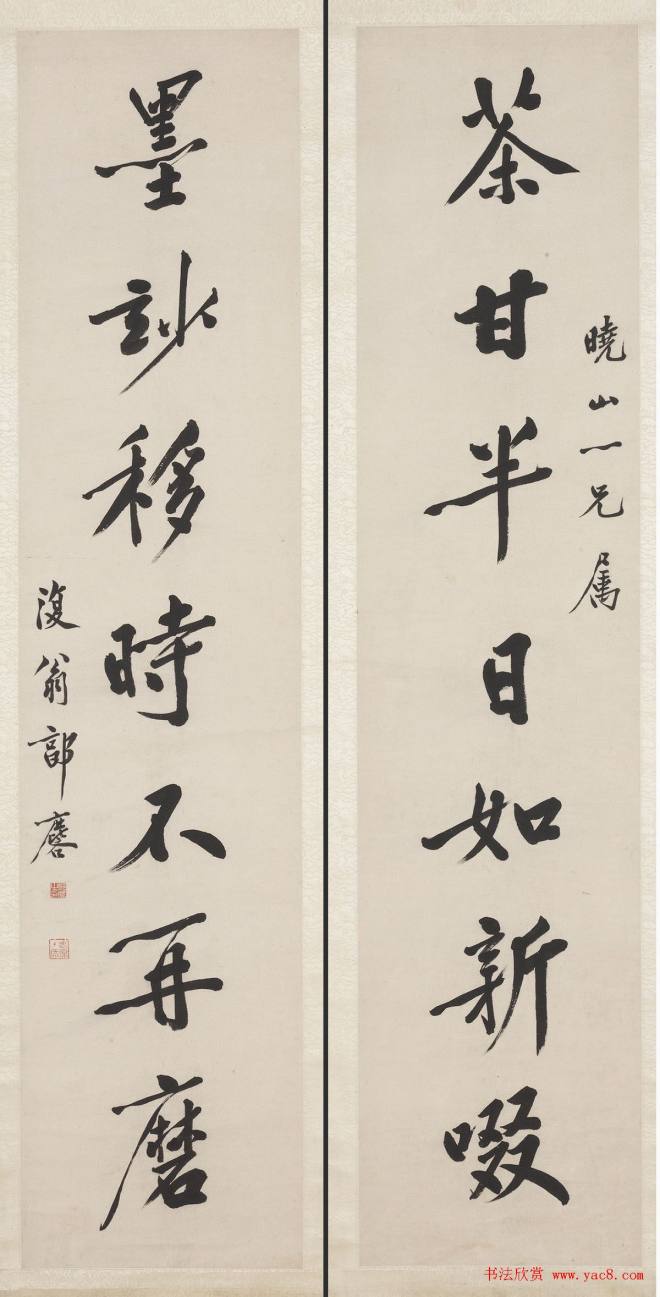 茶甘半日如新啜
曉山一兄属
墨玅移時不再磨
復翁郭麐
书法欣赏 www.yac8.com